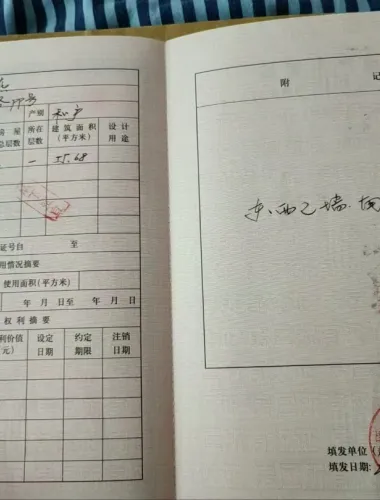 产别 私产
房屋总层数 所在层数 建筑面积(平方米) 设计用途
一 55.68
证号自 至
用情况摘要
使用面积(平方米)
年 月 日至 年 月 日
权利摘要
利价值(元) 设定日期 约定期限 注销日期
附 记
东、西乙墙
填发单位(
填发日期: